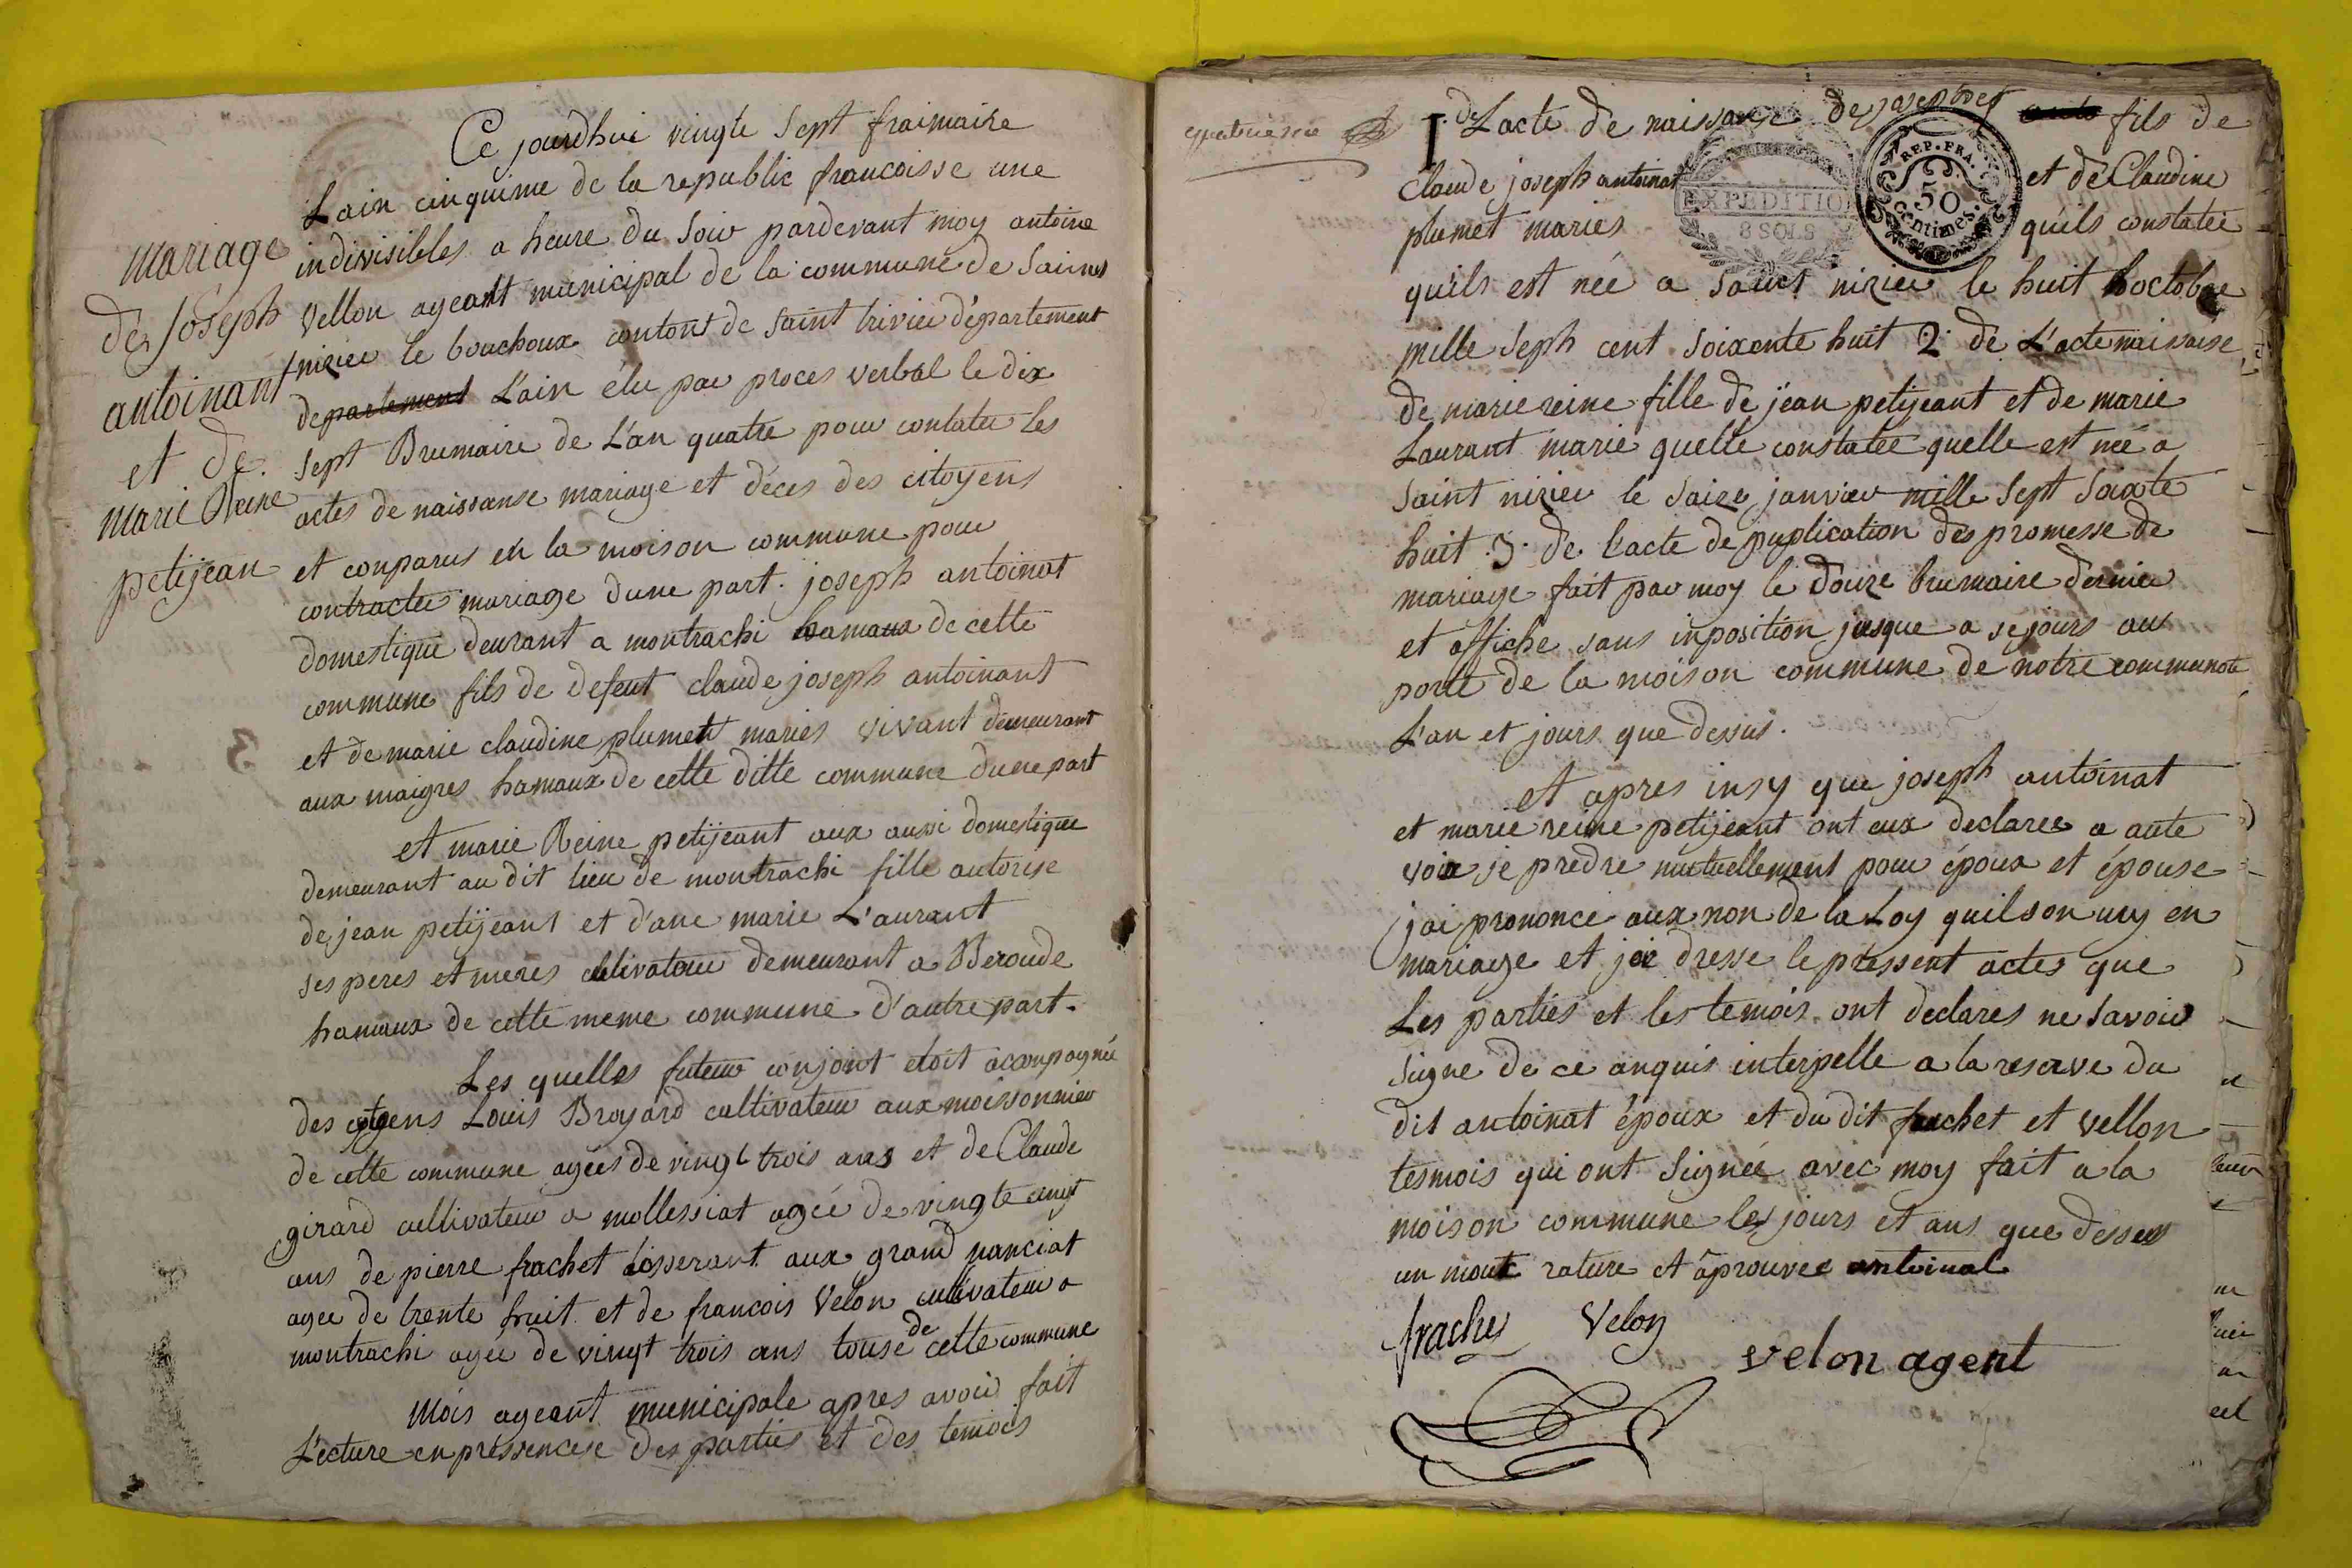 Mariage
de Joseph
antoinant
et de
Marie Reine
petijean
Ce jourdhui vingte sept fraimaire
Lain cinquime de la republic francoisse une
indivisibles a heure du soir pardevant moy antoine
Vellon ageant municipal de la commune de Saint
nizier le bouchoux contont de saint trivier département
departement L'ain élu par proces verbal le dix
sept Brumaire de L'an quatre pour contater les
actes de naissanse mariage et déces des citoyens
et conparus en la moison commune pour
contracter mariage dune part. joseph antoinat
domestique deurant a montrachi hamaux de cette
commune fils de defeut claude joseph antoinant
et de marie claudine plumett mariés vivant demeurant
aux maigres hamaux de cette ditte commune dune part
et marie Reine petijeant aux aussi domestique
demeurant au dit lieu de montrachi fille autorise
de jean petijeant et d'ane marie L'aurant
ses peres et meres cultivateur demeurant a Beroude
hamaux de cette meme commune d'autre part.
Les quelles futeur conjoint etoit aconpagnée
des citoyens Louis Broyard cultivateur aux moissonnier
de cette commune agées de vingt trois ans et de Claude
girard cultivateur a mollessiat agée de vingte cinqt
ans de pierre frachet tisserant aux grand nanciat
agee de trente huit et de francois Velon cultivateur a
montrachi agée de vingt trois ans touse de cette commune
Mois ageant municipale apres avoir fait
L'ecture en pressencese des parties et des temoes
3
1° de Lacte de naissance de joseph fils de
claude joseph antoinat et de Claudine
plumet mariés quils constatée
REP. FRA.
50
centimes.
EXPEDITION
8 SOLS
quils est née a saint nizier le huit hoctobre
mille seph cent soixante huit 2° de L'acte naissaise
de marie reine fille de jean petijeant et de marie
Laurant marie quelle constatee quelle est née a
saint nizier le saize janvier mille sept soixate
huit . 3° de L'acte de puplication des promesse de
mariage fait par moy le douze brumaire dernier
et affiche sans inposition jusque a se jours aux
porte de la moison commune de notre commune
L'an et jours que dessus.
et apres insy que joseph antoinat
et marie reine petijeant ont eux declarer a aute
voix je predre mutuellement pour époux et épouse
jai prononce aux non de la Loy quil son uny en
mariage et jai dresse le pressent actes que
Les parties et les temois ont declares ne savoir
signe de ce anquis interpelle a la reserve du
dit antoinat époux et du dit frachet et vellon
tesmois qui ont signée avec moy fait a la
moison commune les jours et ans que dessus
un mout rature et aprouvee antoinat
frachet Velon
velon agent